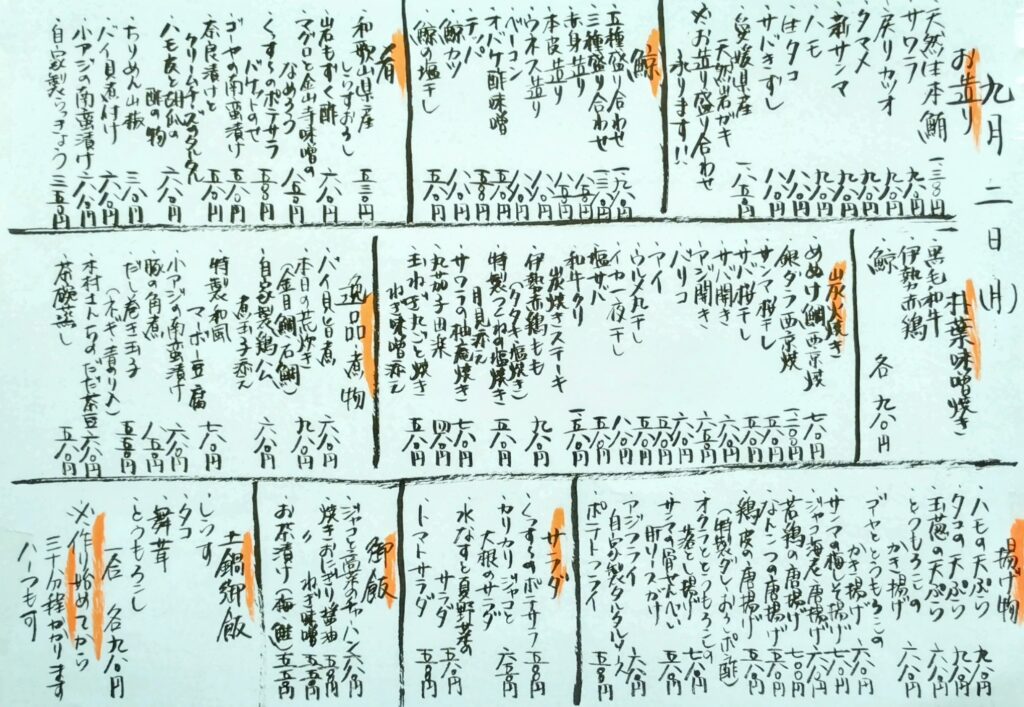 九月二日(月)
お造り
・天然生本鮪 一三八〇円
・サワラ 九八〇円
・戻りカツオ 九八〇円
・タマメ 九八〇円
・新サンマ 九八〇円
・ハモ 九八〇円
・生タコ 八八〇円
・サバきずし 八八〇円
・愛媛県産
天然岩ガキ 八五〇円
※お造り盛り合わせ
承ります!!
鯨
・五種盛り合わせ 一九八〇円
・三種盛り合わせ
・赤身造り
・本皮造り
・ウネス造り
・ベーコン
・オバケ酢味噌
・テッパ
・鯨カツ
・鯨の塩干し
肴
・和歌山県産
しらすおろし 五三〇円
・岩もずく酢 六八〇円
・マグロと金山寺味噌の
なめろう 八五〇円
・くずしのポテサラ
バケットのせ
・ゴーヤの南蛮漬け
・奈良漬けと
クリームチーズのタルタル
・ハモ皮と胡瓜の
酢の物 六八〇円
・ちりめん山椒 三八〇円
・バイ貝煮付け 六八〇円
・小アジの南蛮漬け 六八〇円
・自家製らっきょう 三五〇円
井葉味噌焼き
・黒毛和牛
・伊勢赤鶏
・鯨
各 九八〇円
炭火焼き
・めぬけ鯛西京焼 七八〇円
・銀ダラ西京焼
・サンマ桜干し
・サバ桜干し
・サバ開き
・アジ開き
・バリコ
・アイ
・ウルメ丸干し
・イカ一夜干し
・塩サバ
・和牛タン
炭焼きステーキ
・伊勢赤鶏もも
(タタキ・塩焼き) 九八〇円
・特製つくねの塩焼き
月見添え
・サワラの柚庵焼き 七八〇円
・丸茄子田楽
・玉ねぎ丸ごと焼き
ねぎ味噌添え
逸品・煮物
・バイ貝と煮 六八〇円
・本日の荒炊き 九八〇円
(金目鯛・石鯛)
・自家製鶏公、
煮玉子添え 六八〇円
・特製和風
マーボー豆腐 七八〇円
・小アジの南蛮漬け 六八〇円
・豚の角煮 八五〇円
・だし巻き玉子
(ネギ・青のり入)
・木村さんちのだだ茶豆 六八〇円
・茶碗蒸し 五八〇円
揚げ物
・ハモの天ぷら 九八〇円
・タコの天ぷら 九八〇円
・玉葱の天ぷら 六八〇円
・とうもろこしの
かき揚げ 六八〇円
・ゴーヤととうもろこしの
かき揚げ
・サンマの梅しそ揚げ
・ジャンボ海老唐揚げ
・若鶏の唐揚げ
・なんこつの唐揚げ
・鶏皮の唐揚げ
(特製ダレ・おろしポン酢)
・オクラととうもろこしの
落とし揚げ 七八〇円
・サンマの骨せんべい
肝ソースがけ
・アジフライ
(自家製タルタルソース) 六八〇円
・ポテトフライ 五八〇円
サラダ
・くずしのポテサラ 五八〇円
・カリカリジャコと
大根のサラダ 六五〇円
・水なすと夏野菜の
サラダ 六五〇円
・トマトサラダ 五八〇円
御飯
・ジャコと高菜のチャーハン 六八〇円
・焼きおにぎり醤油
・〃 ねぎ味噌
・お茶漬け(梅・鮭) 五五〇円
土鍋御飯
・しらす
・タコ
・舞茸
・とうもろこし
一合 各九八〇円
※作り始めてから
三十分程かかります
ハーフも可